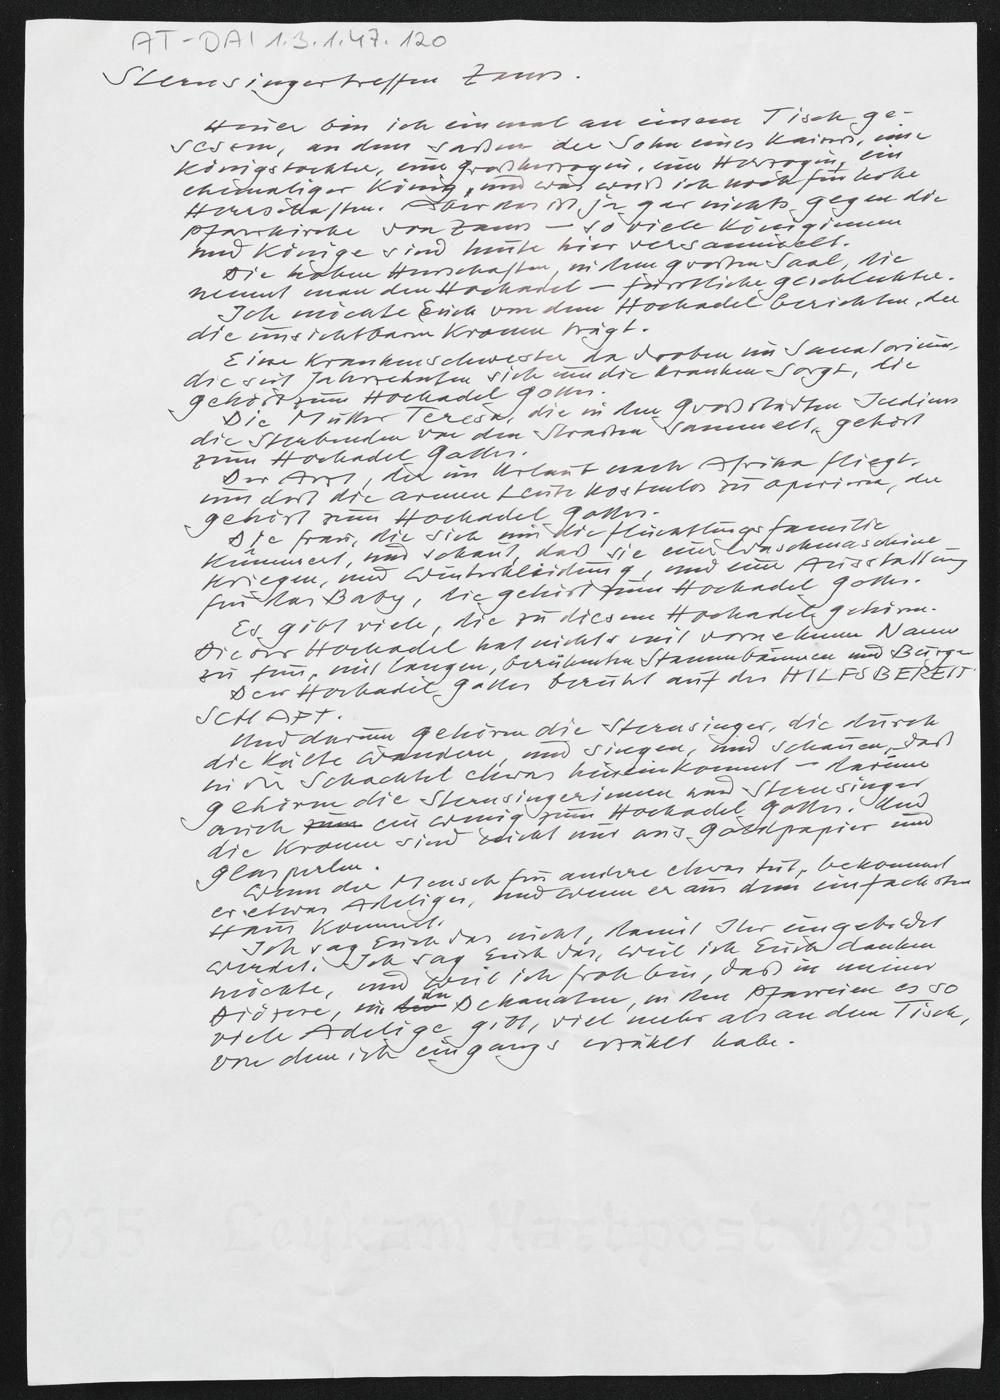 AT-DAI 1.3.1.47.120
Sternsingertreffen Zams.
Heuer bin ich einmal an einem Tisch ge-
sessen, an dem saßen der Sohn eines Kaisers, eine
Königstochter, eine Großherzogin, eine Herzogin, ein
ehemaliger König, und was weiß ich noch für hohe
Herrschaften. Aber das ist ja gar nichts gegen die
Pfarrkirche von Zams – so viele Königinnen
und Könige sind heute hier versammelt.
Die hohen Herrschaften, in dem großen Saal, die
nennt man den Hochadel – fürstliche Geschlechter.
Ich möchte Euch von dem Hochadel berichten, der
die unsichtbaren Kronen trägt.
Eine Krankenschwester da droben im Sanatorium,
die seit Jahrzehnten sich um die Kranken sorgt, die
gehört zum Hochadel Gottes.
Die Mutter Teresa, die in den Großstädten Indiens
die Sterbenden von den Straßen sammelt, gehört
zum Hochadel Gottes.
Der Arzt, der im Urlaub nach Afrika fliegt,
um dort die armen Leute kostenlos zu operieren, der
gehört zum Hochadel Gottes.
Die Frau, die sich um die Flüchtlingsfamilie
kümmert, und schaut, daß sie eine Waschmaschine
kriegen, und Winterkleidung, und eine Ausstattung
für das Baby, die gehört zum Hochadel Gottes.
Es gibt viele, die zu diesem Hochadel gehören.
Dieser Hochadel hat nichts mit vornehmen Namen
zu tun, mit langen, berühmten Stammbäumen und Burgen
Der Hochadel Gottes beruht auf der HILFSBEREIT
SCHAFT.
Und darum gehören die Sternsinger, die durch
die Kälte wandern, und singen, und schauen, daß
in die Schachtel etwas hineinkommt – darum
gehören die Sternsingerinnen und Sternsinger
auch zum ein wenig zum Hochadel Gottes. Und
die Kronen sind nicht nur aus Goldpapier und
Glasperlen.
Wenn der Mensch für andere etwas tut, bekommt
er etwas Adeliges, und wenn er aus dem einfachsten
Haus kommt.
Ich sag Euch das nicht, damit Ihr eingebildet
werdet. Ich sag Euch das, weil ich Euch danken
möchte, und weil ich froh bin, daß in meiner
Diözese, in den Dekanaten, in den Pfarreien es so
viele Adelige gibt, viel mehr als an dem Tisch,
von dem ich eingangs erzählt habe.
1935 Leykam Hartpost 1935